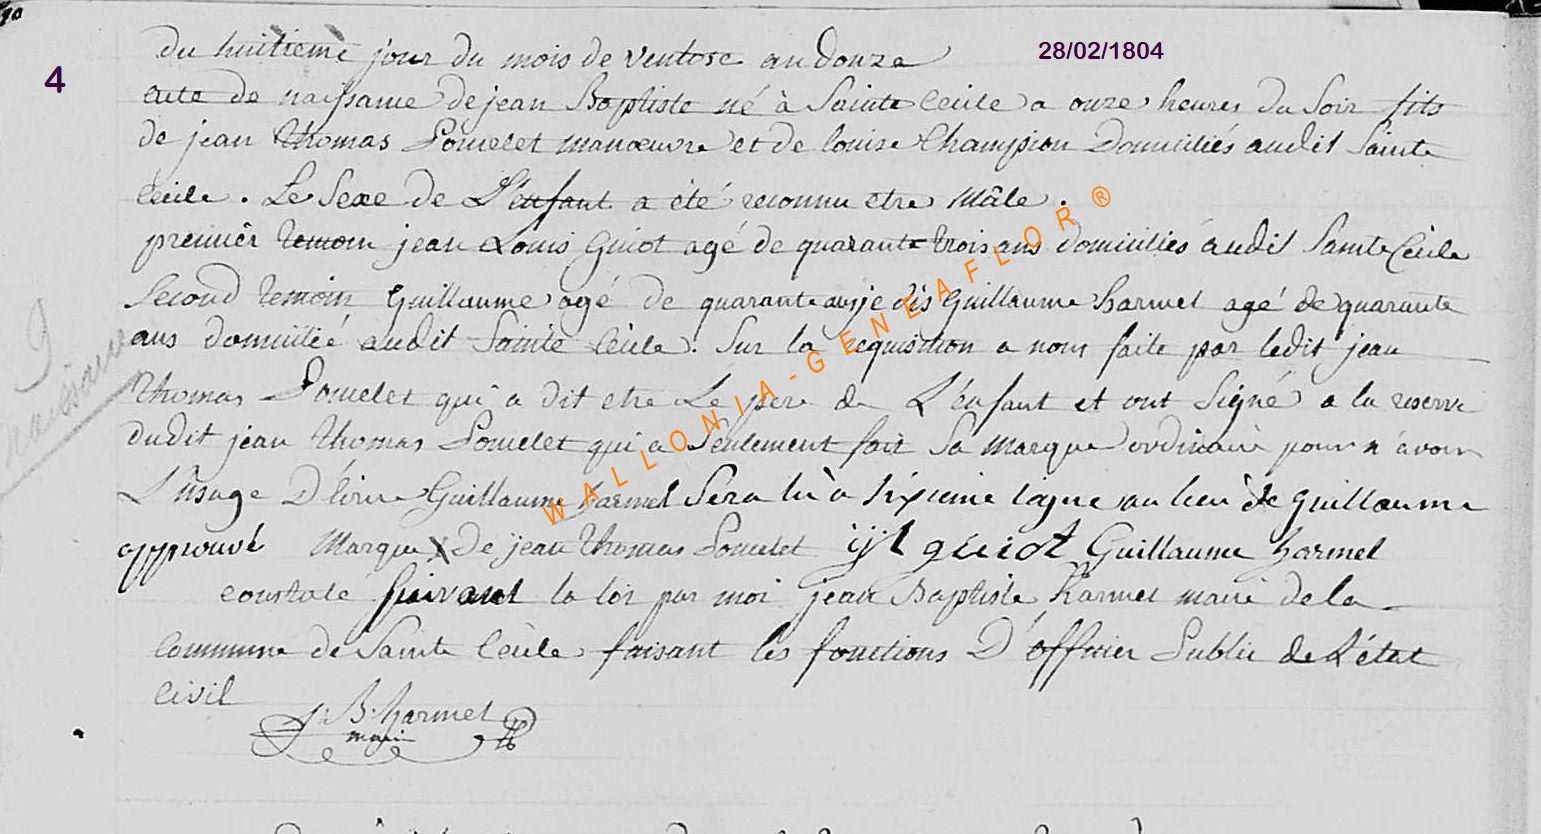 4
28/02/1804
Du huitieme jour du mois de ventose an douze
acte de naissance de jean Baptiste né à Sainte Cecile a onze heures du Soir fils
de jean thomas Poncelet manœuvre et de louise Champion Domiciliés audit Sainte
Cecile. Le Sexe de L'énfant a été reconnu etre Mâle.
premiér temoin jean Louis Guiot agé de quarante trois ans domiciliés audit Sainte Cecile
Second temoin Guillaume agé de quarante ans je dis Guillaume harmel agé de quarante
ans domicilié audit Sainte Cécile. Sur la requisition a nous faite par ledit jean
thomas Poncelet qui a dit etre Le pere de L'énfant et ont Signé a la reserve
dudit jean thomas Poncelet qui a Seulement fait Sa Marque ordinaire pour n'avoir
L'usage D'écrire Guillaume harmel Sera lu à sixieme ligne au lieu de Guillaume
approuvé Marque X De jean thomas Poncelet jl guiot Guillaume harmel
constaté Suivant la loi par moi jean Baptiste harmel maire de la
Commune de Sainte Cécile faisant les fonctions D'officier Public de L'état
Civil
J. B. harmel
maire
naissance
WALLONIA-GENEAFLOR ®